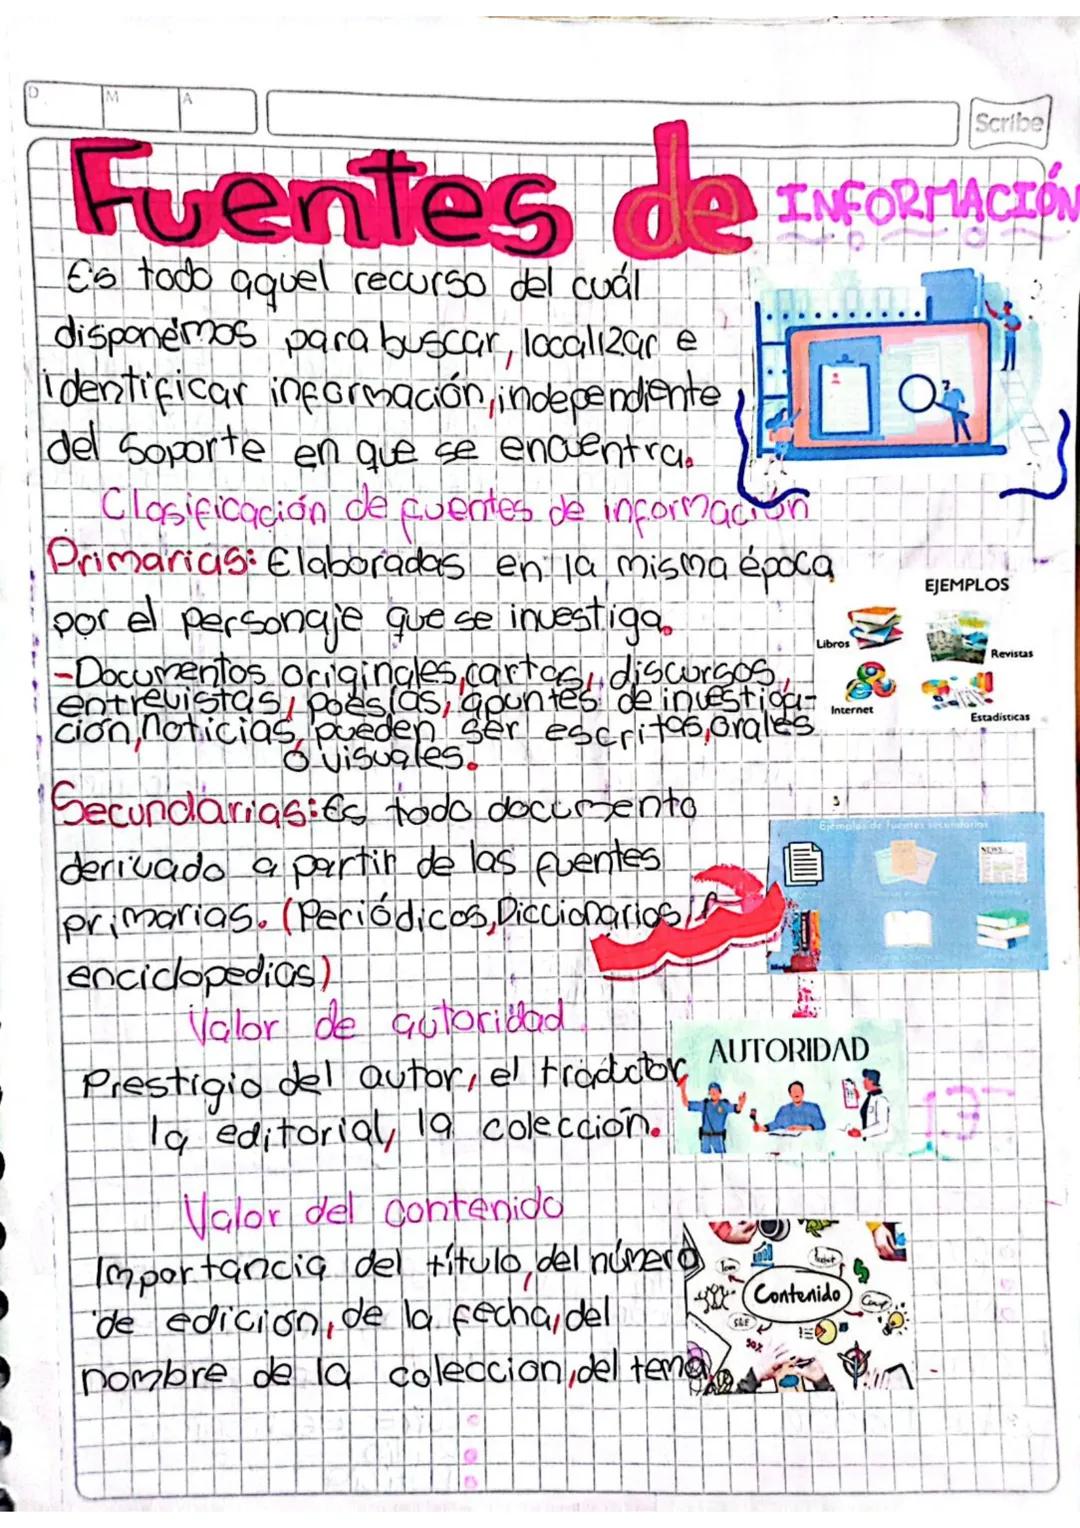 D M A
Scribe
Fuentes de INFORMACIÓN
Es todo aquel recurso del cuál
disponémos para buscar, localizar e
identificar información, independiente
del soporte en que se encuentra.
Clasificación de fuentes de información
Primarias: Elaboradas en la misma época
por el personaje que se investiga.
-Documentos originales, cartas, discursos,
entrevistas, poesías, apuntes de investiga-
ción, noticias, pueden ser escritas, orales
o visuales.
EJEMPLOS
Libros
Revistas
Internet
Estadísticas
Secundarias: Es todo documento
derivado a partir de las fuentes
primarias. (Periódicos, Diccionarios,
enciclopedias)
Ejemplos de fuentes secundarias
NEWS
Valor de autoridad
Prestigio del autor, el traductor,
la editorial, la colección.
AUTORIDAD
Valor del contenido
Importancia del título, del número
de edición, de la fecha, del
nombre de la coleccion, del tema,
Contenido